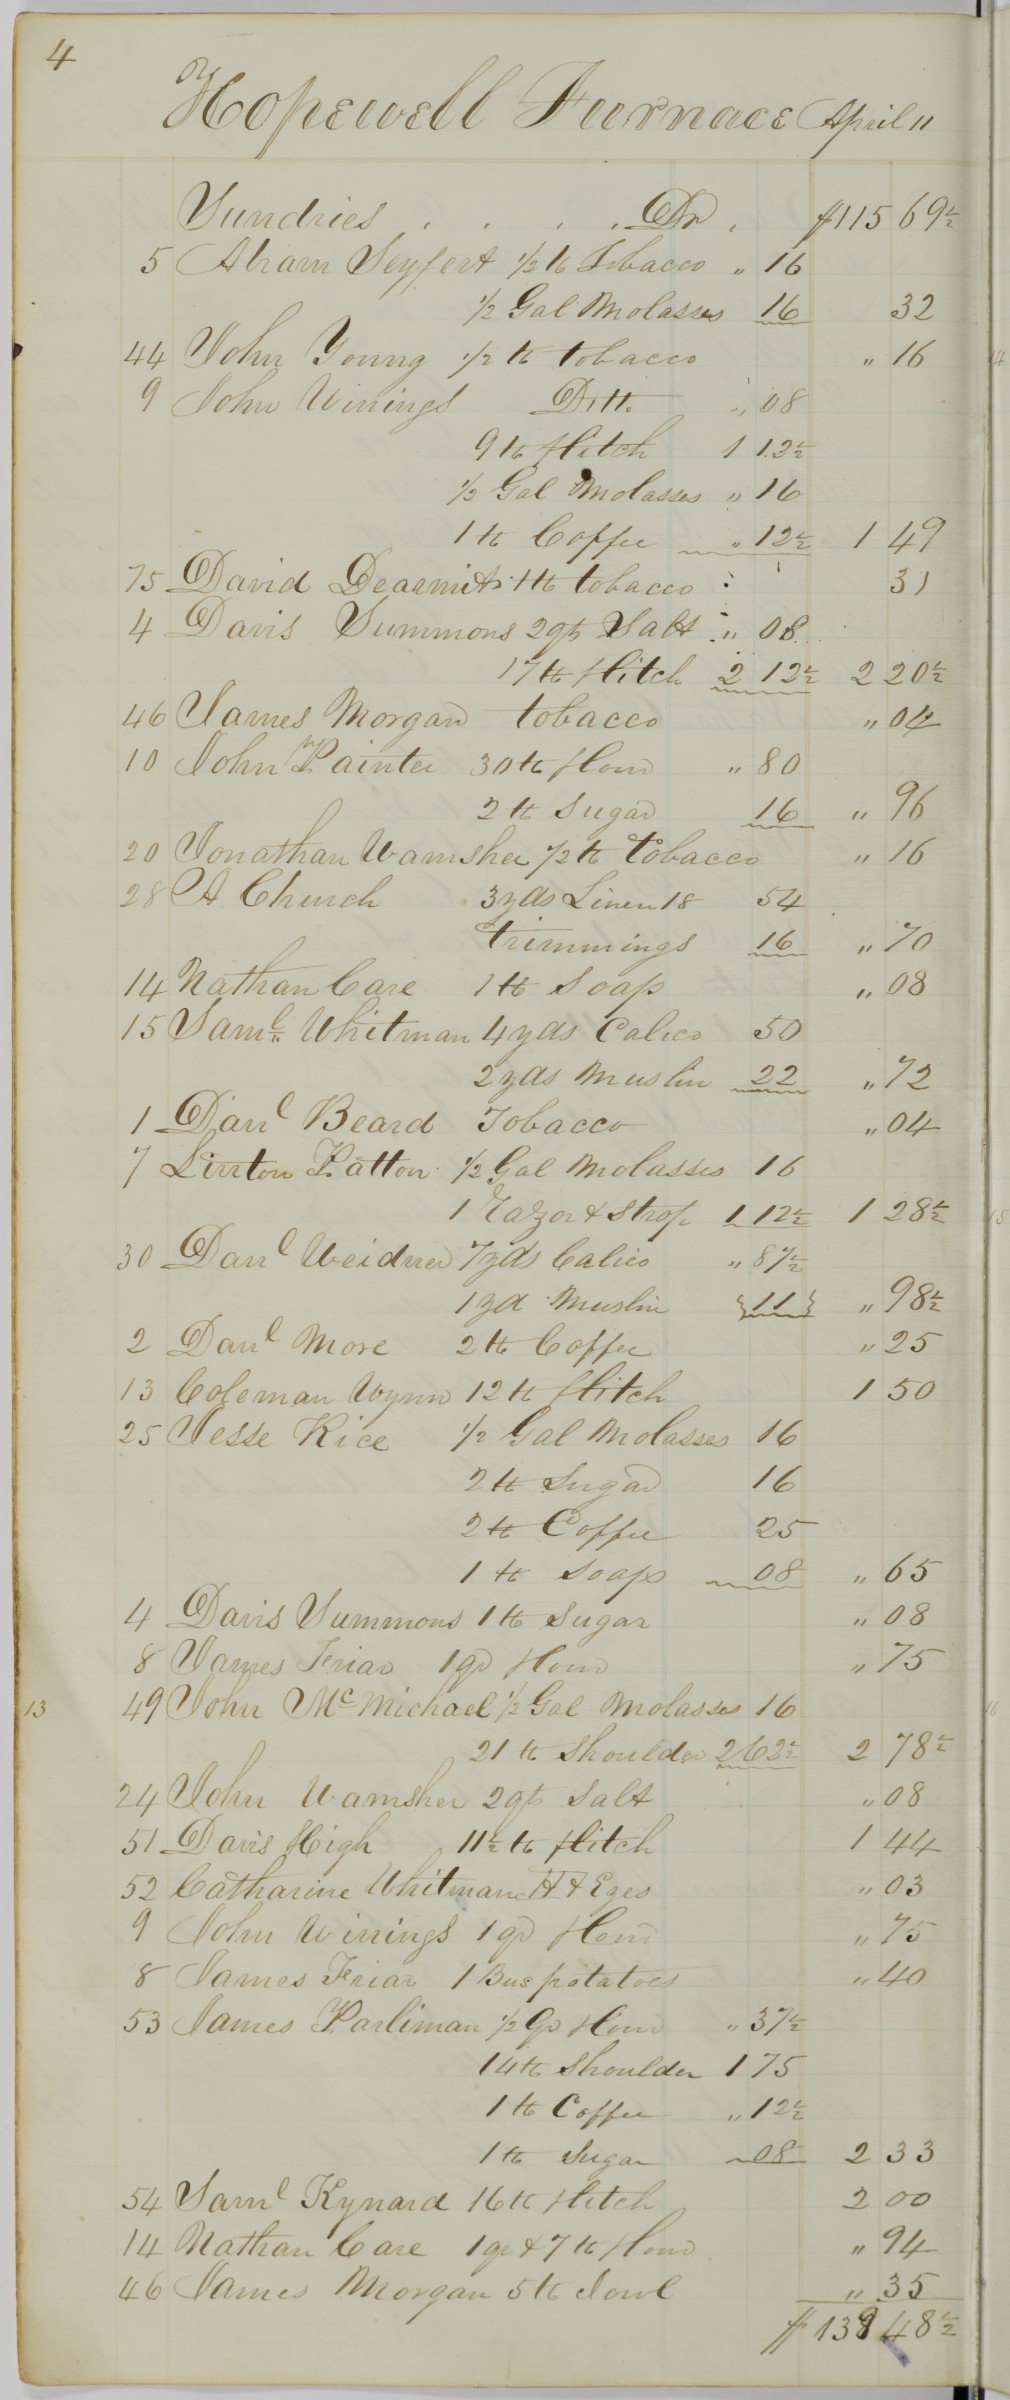 4
Hopewell Furnace April 11
Sundries . . . . . Dr . $115 69½
5 Abram Seyfert ½ lb Tobacco " 16
½ Gal Molasses 16 32
44 John Young ½ lb tobacco " 16
9 John Winings Ditto " 08
9 lb flitch 1 12½
½ Gal Molasses " 16
1 lb Coffee " 12½ 1 49
75 David Dearmit 1 lb tobacco 31
4 Davis Summons 2 qts Salt " 08
17 lb flitch 2 12½ 2 20½
46 James Morgan tobacco " 04
10 John Painter 30 lb flour " 80
2 lb Sugar 16 " 96
20 Jonathan Wamsher ½ lb tobacco " 16
28 A Church 3 yds Linen 18 54
trimmings 16 " 70
14 Nathan Care 1 lb Soap " 08
15 Saml Whitman 4 yds Calico 50
2 yds Muslin 22 " 72
1 Danl Beard Tobacco " 04
7 Linton Patton ½ Gal Molasses 16
1 Razor & Strop 1 12½ 1 28½
30 Danl Weidner 7 yds Calico " 87½
1 yd Muslin 11 " 98½
2 Danl More 2 lb Coffee " 25
13 Coleman Wynn 12 lb flitch 1 50
25 Jesse Rice ½ Gal Molasses 16
2 lb Sugar 16
2 lb Coffee 25
1 lb Soap 08 " 65
4 Davis Summons 1 lb Sugar " 08
8 James Friar 1 qr flour " 75
13 49 John McMichael ½ Gal Molasses 16
21 lb Shoulder 2 62½ 2 78½
24 John Wamsher 2 qts Salt " 08
51 Davis High 11½ lb flitch 1 44
52 Catharine Whitman H & Eyes " 03
9 John Winings 1 qr flour " 75
8 James Friar 1 Bus potatoes " 40
53 James Parliman ½ Qr flour " 37½
14 lb Shoulder 1 75
1 lb Coffee " 12½
1 lb Sugar 08 2 33
54 Saml Kynard 16 lb flitch 2 00
14 Nathan Care 1 qr & 7 lb flour " 94
46 James Morgan 5 lb Jowl " 35
$139 48½